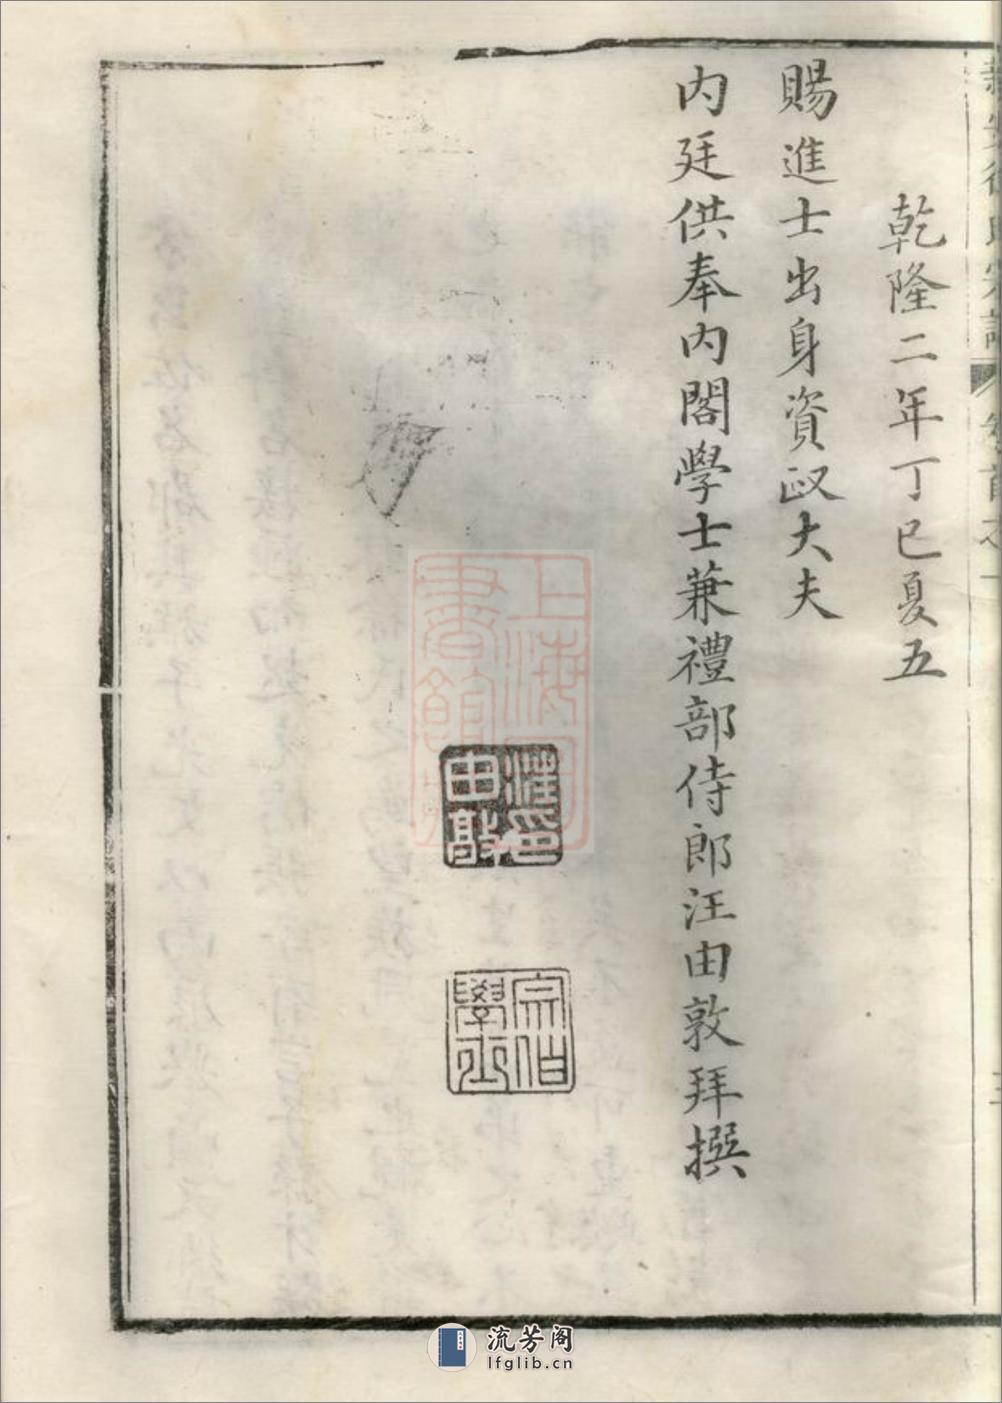 乾隆二年丁巳夏五
賜進士出身資政大夫
内廷供奉内閣學士兼禮部侍郎汪由敦拜撰
汪印
由敦
宗伯
學士
上海圖
書館藏
流芳阁
lfglib.cn